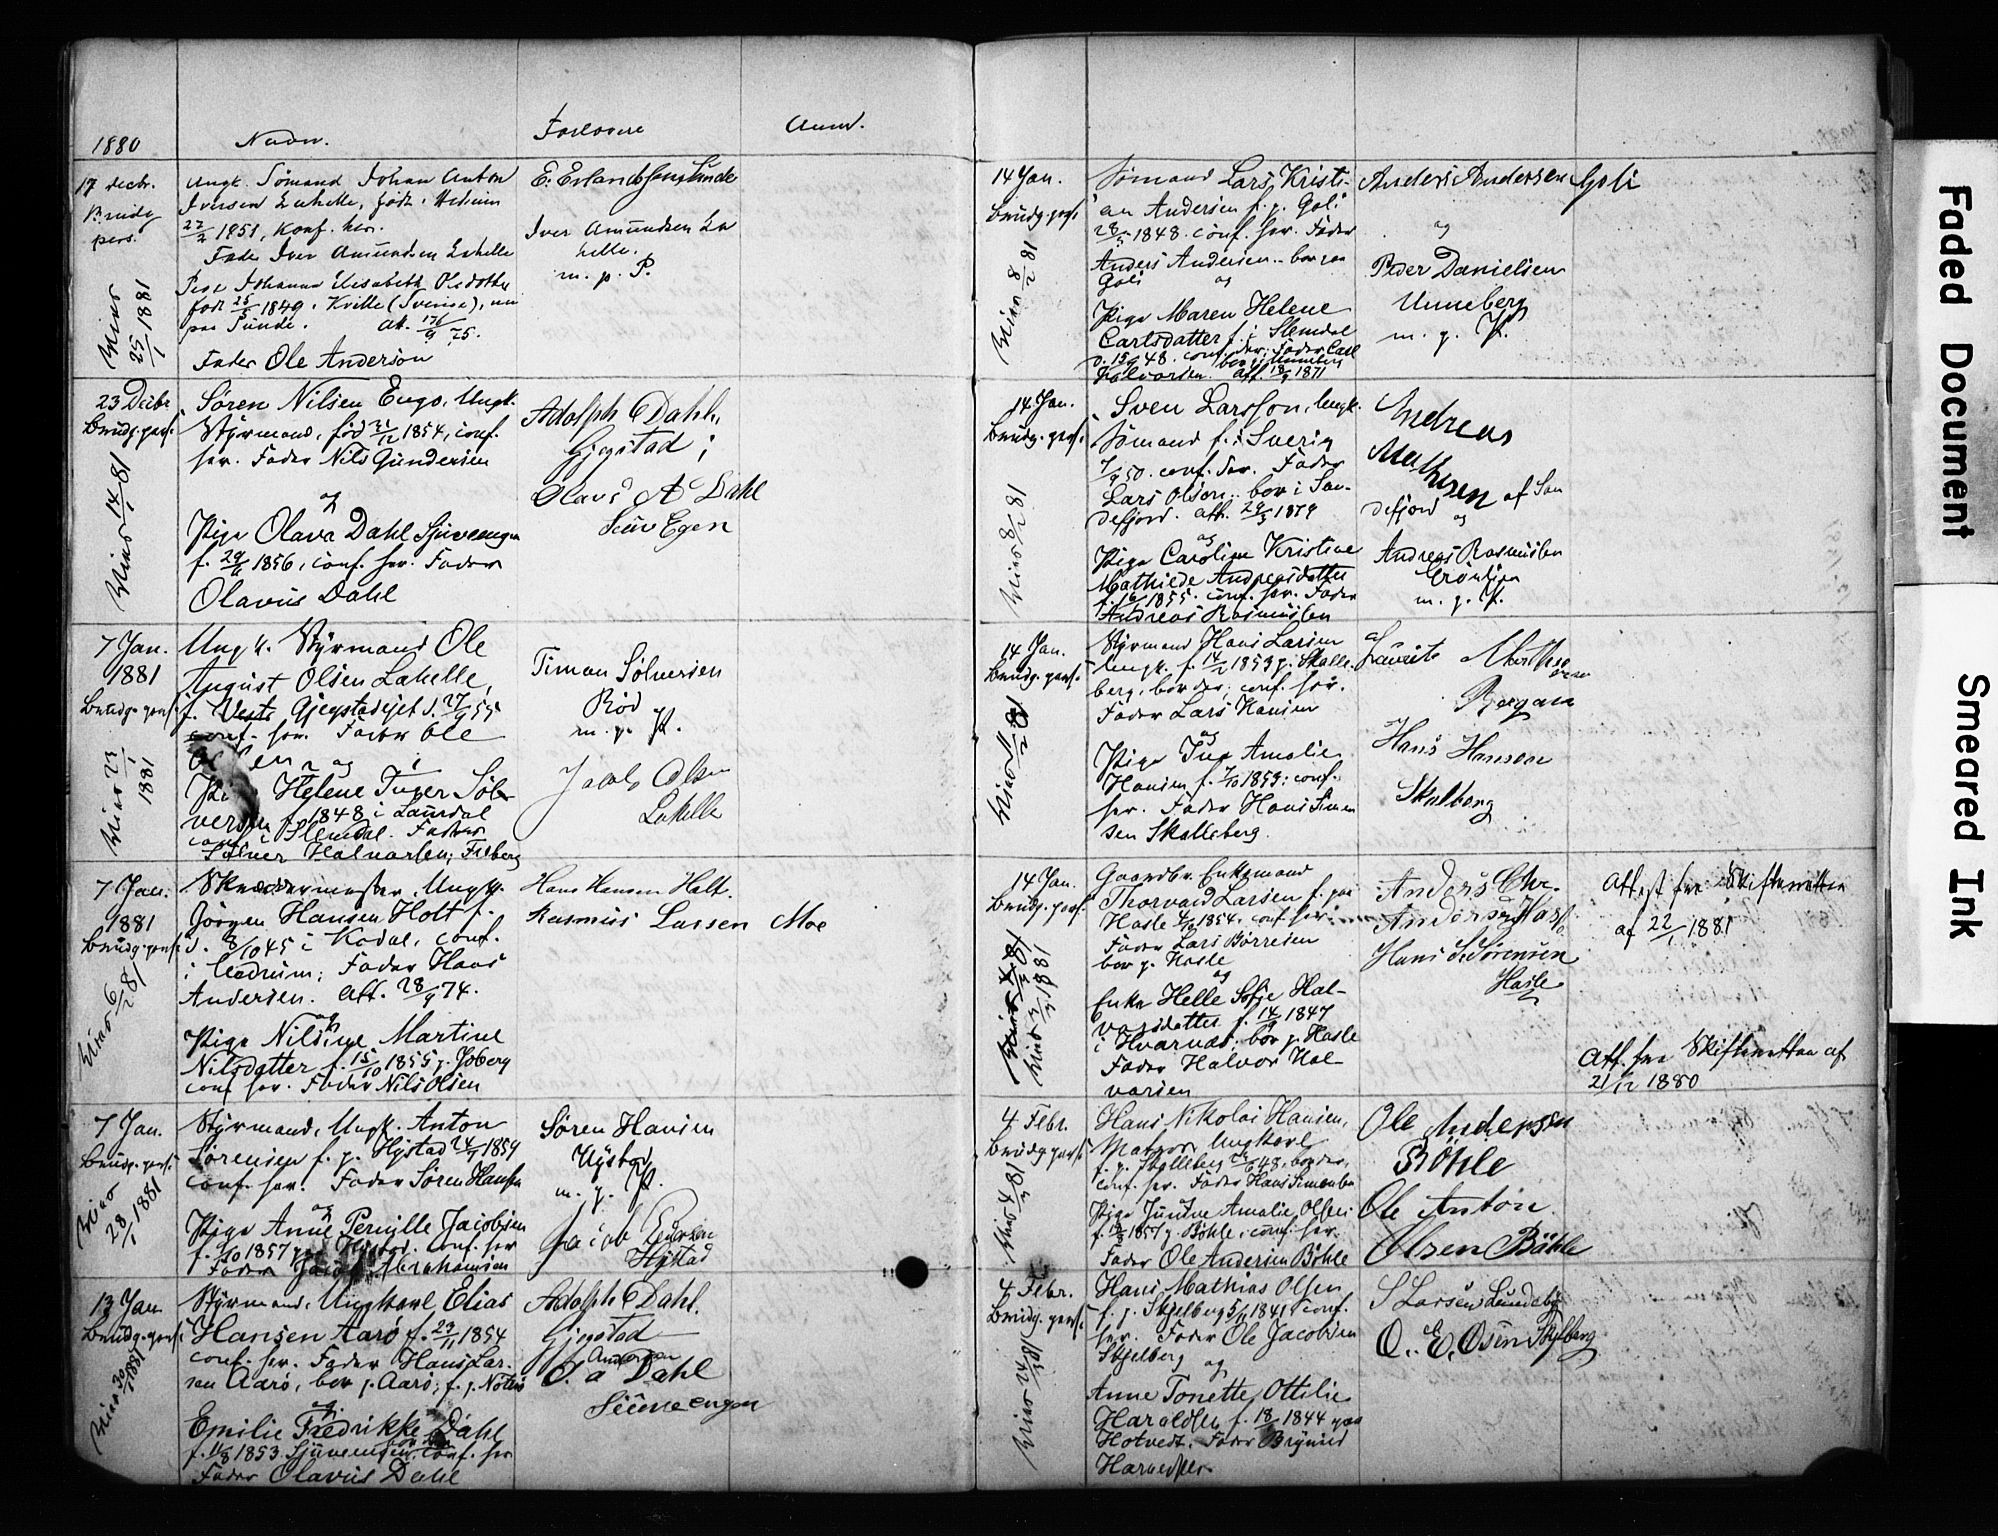 1880
Navn.
Forlovere
Anm.
17 Decbr.
Brudg.
pers.
Viet 25/1 1881
Ungk. Sømand Johan Anton
Iversen Lahelle, født i Hedrum
27/2 1851, Konf. her.
Fader Iver Amundsen Lahelle
Pige Johanne Elisabeth Olsdotter
født 25/5 1849 i Kville (Sverige), nu
paa Sunde. at. 17/9 75.
Fader Ole Anderson
E. Erlandsen Sunde
Iver Amundsen La
helle.
m. p. P.
23 Decbr
Brudg. pers.
Viet 14/1 81
Søren Nilsen Engo, Ungk.
Styrmand, fød 21/12 1854, conf.
her. Fader Nils Gundersen
og
Pige Olava Dahl Sjuveengen
f. 29/6 1856, conf. her. Fader
Olavus Dahl
Adolph C Dahl,
Gjegstad;
Olavs A Dahl
7 Jan.
1881
Brudg. pers.
Viet 23/1 1881
Ungk. Styrmand Ole
August Olsen Lahelle,
f. Vestre Gjegstadejet d. 27/9 55
conf. her. Fader Ole
og
Helene Inger Søl-
versen f. 1848 i Laurdal
i Slemdal. Fader
Sølver Halvorsen, Freberg
Timan Sølversen
Rød
m. p. P.
Jacob Olsen
Lahelle
7 Jan.
1881
Brudg. pers.
Viet 6/2 81
Skræddermester, Ungk.
Jørgen Hansen Holt f.
d. 8/10 45 i Kodal, conf.
i Andrum; Fader Hans
Andersen. Att. 28/9 74.
og
Pige Nildine Martine
Nilsdatter f. 15/10 1855 p. Joberg
conf her. Fader Nils Olsen
Hans Hansen Holt.
Rasmus Larsen Moe
7 Jan.
Brudg. pers.
Viet 28/1 1881
Styrmand, Ungk. Anton
Sørensen f. p. Hystad 24/1 1859
conf. her. Fader Søren Hansen
og
Pige Anne Pernille Jacobsen
f. 1857 paa Hystad. conf. her
Fader Jacob Abrahamsen
Søren Hansen
Hystad
m. p. P.
Jacob
Hystad
13 Jan
Brudg. pers.
Viet 30/1 1881
Styrmand, Ungkarl Elias
Hansen Aarø f. 23/11 1854
conf. her. Fader Hans Lar-
sen Aarø, bor p. Aarø; f. p. Nøterø
og
Emilie Fredrikke Dahl
f. 11/8 1853 Sjuvengen, conf. her
Fader Olavus Dahl
Adolph C Dahl.
Gjegstad
Andersen
O. A Dahl
14 Jan.
Brudg. pers.
Viet 8/2 81
Sømand Lars Kristi-
an Andersen f. p. Goli
28/5 1848. conf. her. Fader
Anders Andersen.. bor paa
Goli og
Pige Maren Helene
Carlsdatter f. i Slemdal
d. 15/9 48. conf. der; Fader Carl
Halvorsen. bor i Unneberg Att. 18/9 1871
Anders Andersen Goli
og
Peder Danielsen
Unneberg
m. p. P.
14 Jan.
Brudg. pers.
Viet 8/2 81
Sven Larsson, Ungk.
Sømand f. i Sverig
7/9 50. conf. der. Fader
Lars Olson.. bor i San-
defjord. att. 29/3 1879
og
Pige Caroline Kristine
Mathilde Andreasdatter
f. 16/6 1855. conf. her. Fader
Andreas Rasmussen
Andreas
Mathisen af San
defjord og
Andreas Rasmussen
m. p. P.
14 Jan.
Brudg. pers.
Viet 11/2 81
Styrmand Hans Larsen
Ungk. f. 14/2 1853 p. Skalle-
berg, bor der; conf. her.
Fader Lars Hansen
og
Pige Ine Amalie
Hansen f. 7/10 1859; conf.
her. Fader Hans Simen
sen Skalleberg.
Laurits Marthin
Bergan
Hans Hansen
Skalberg
14 Jan.
Brudg. pers.
Viet 3/3 1881
Gaardbr. Enkemand
Thorvald Larsen f. paa
Hasle 4/12 1854, conf her
Fader Lars Børresen
bor p. Hasle
og
Enke Helle Sofie Hal-
vorsdatter f. 14/9 1847
i Hvarnes; bor p. Hasle
Fader Halvor Hal
vorsen
Anders Chr.
Andersen Hasle
Hans S. Sørensen
Hasle
Attest fra Skifteretten
af 22/1 1881
Att. fra Skifteretten af
21/12 1880
4 Febr.
Brudg. pers.
Viet 4/3 81
Hans Nikolai Hansen,
Matros, Ungkarl
f. p. Skalleberg 24/6 48, bor der,
conf. her. Fader Hans Simensen
Pige Juntine Amalie Olsen
f. 1857 p. Bøhle, conf. her.
Fader Ole Andersen Bøhle
Ole Andersen
Bøhle
Ole Anton
Olsen Bøhle
4 Febr.
Brudg. pers.
Viet 24/3 81
Hans Mathias Olsen
f. p. Skjelberg 5/11 1841 conf.
her. Fader Ole Jacobsen
Skjelberg og
Anne Tonette Ottilie
Haraldsen f. 18/9 1844 paa
Hotvedt. Fader Brynild
S Larsen Lundeby
O. E. Olsen Skjelberg
Faded Document
Smeared Ink